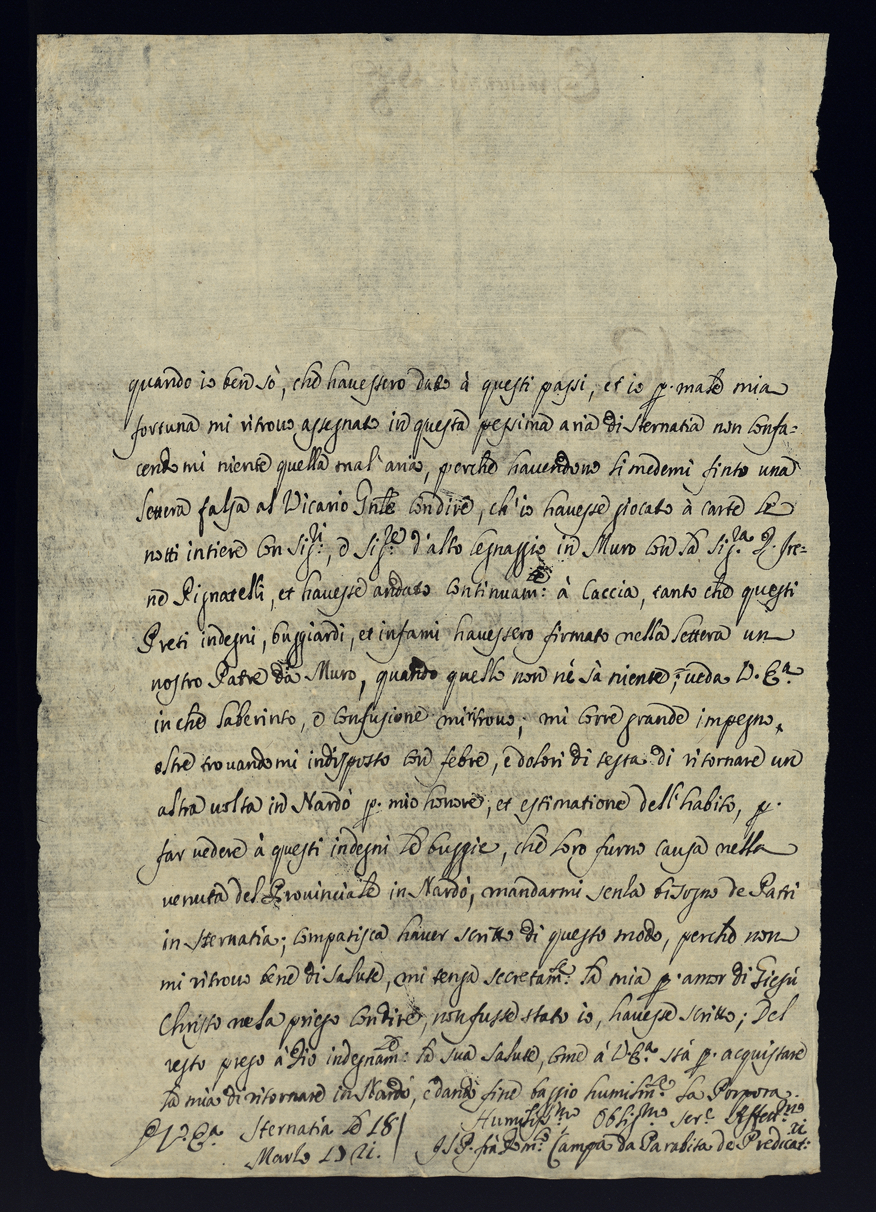 quando io ben sò, che havessero dato à questi passi, et io p. mala mia
fortuna mi ritrovo assegnato in questa pessima aria di Sternatia non confa=
cendomi niente quella mal'aria, perche havendono li medemi finto una
lettera falsa al Vicario Gnle con dire, ch'io havesse giocato à carte le
notti intiere con Sigri, e Sigre d'alto legnaggio in Muro con la Sigra D. Ire=
ne Pignatelli, et havesse andato continuamte: à Caccia, tanto che questi
Preti indegni, buggiardi, et infami havessero firmato nella lettera un
nostro Patre da Muro, quando quello non né sà niente; veda V. Ea
in che laberinto, e confusione mi ritrovo; mi corre grande impegno,
oltre trovandomi indisposto con febre, e dolori di testa di ritornare un
altra volta in Nardò p. mio honore, et estimatione dell'habito, p.
far vedere à questi indegni le buggie, che loro furno causa nella
venuta del Provinciale in Nardò, mandarmi senza bisogno de Patri
in Sternatia; compatisca haver scritto di questo modo, perche non
mi ritrovo bene di salute, mi tenga secretamte la mia p. amor di Giesù
Christo ne la priego con dire, non fusse stato io, havesse scritto; Del
resto prego à Dio indegnamte: la sua salute, come á V. Ea stá p. acquistare
la mia di ritornare in Nardò, e dando fine baggio humilmte la Porpora.
Di V. Ea Sternatia le 18 Humilissmo Obligmo ser.e Affettmo
Marzo 1721. frà Dom.co Campa da Parabita de Predicatri: